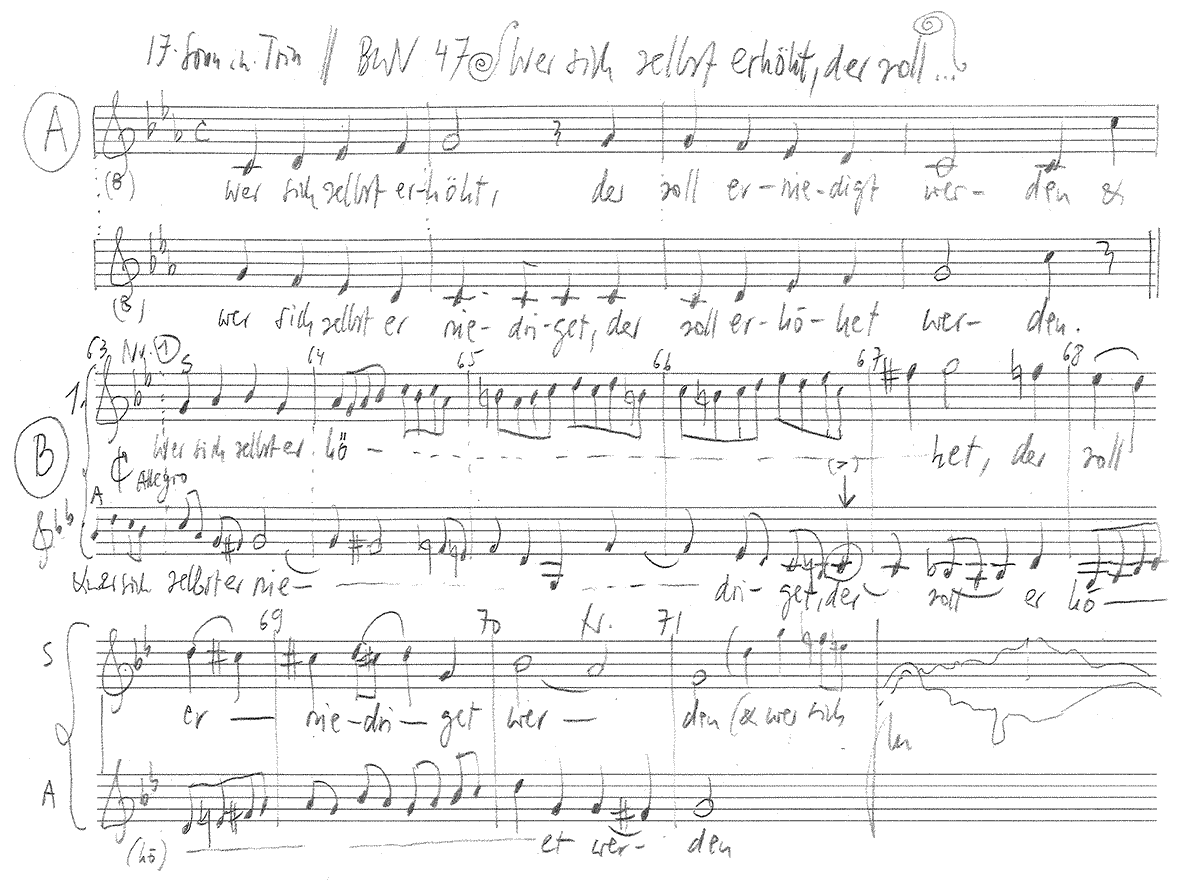 17. Sonn. n. Trin || BWV 47 Wer sich selbst erhöht, der soll...
A
C
(8)
wer sich selbst er-höht, der soll er-nie-digt wer- den &
(8)
wer sich selbst er nie-dri-get, der soll er-hö-het wer- den.
63 Nr. 1 64 65 66 67 68
1. S
B
Wer sich selbst er. hö - het, der soll
¢ Allegro
(>)
A
& wer sich selbst er nie- dri- get, der soll er hö
69 70 tr. 71
S
er — nie-dri-get wer — den (& wer sich
A
(hö) et wer- den